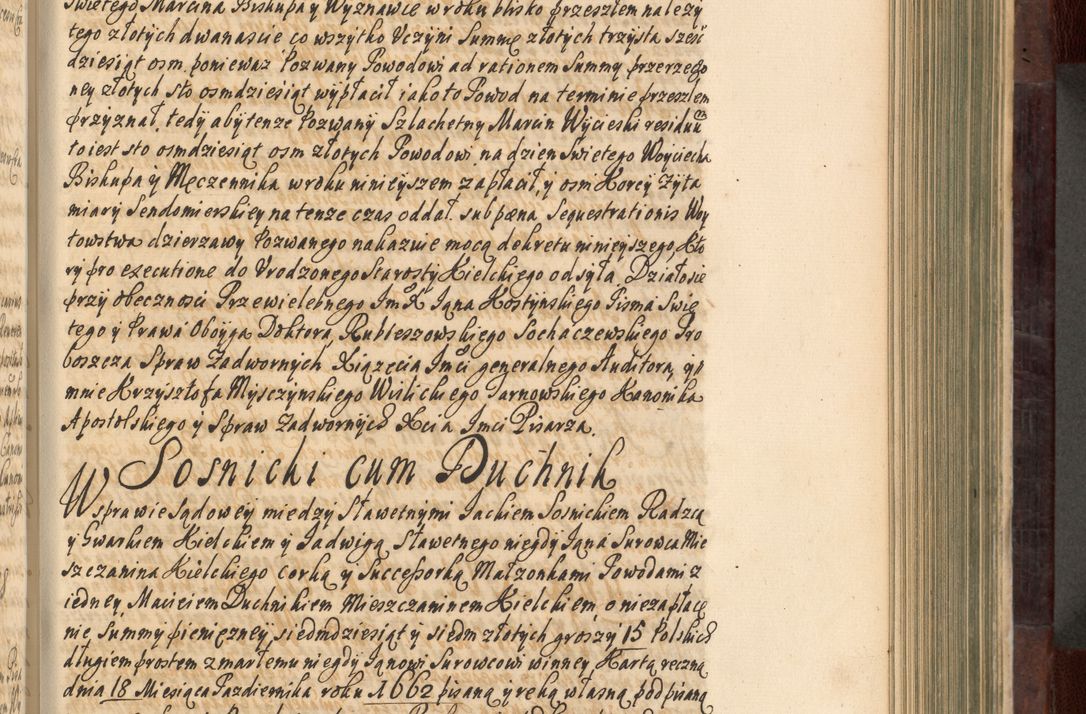 Swietego Marcina Biskupa y Wyznawce w roku blisko przeszłem należy
tego złotych dwanascie co wszytko Vczyni Summę złotych trzysta szesc
dziesiąt osm, ponieważ Pozwany Powodowi ad rationem Summy przerzeczo
ney złotych sto osmdziesiąt wypłacił iako to Powod na terminie przeszłem
przyznał, tedy aby tenze Pozwany Szlachetny Marcin Wycieski residuum
to iest sto osmdziesiąt osm złotych Powodowi na dzien Swietego Woyciecha
Biskupa y Męczennika w roku ninieyszem zapłacił, y osm Korcy Zyta
miary Sendomierskiey na tenze czas oddał. sub pæna Sequestrationis Woy
towstwa dzierzawy Pozwanego nakazuie mocą dekretu ninieyszego, Kto
ry pro executione do Vrodzonego Starosty Kielckiego odsyła. Działo sie
przy obecznosci Przewielebnego ImX Jana Kostynskiego Pisma Swię
tego y Prawa Oboyga Doktora, Rubieszowskiego Sochaczewskiego Pro
boszcza Spraw Zadwornych Xiązęcia Jmci generalnego Auditora, y p
mnie Krzysztofa Mysczynskiego Wislickiego Tarnowskiego Kanonika
Apostolskiego y Spraw Zadwornych Xcia Jmci Pisarza.
Sosnicki cum Duchnik
W sprawie sądowey miedzy Sławetnymi Jackiem Sosnickiem Radzcą
y Gwarkiem Kielckiem y Jadwigą Sławetnego niegdy Jana Surowca Mie
szczanina Kielckiego corką y Successorką Małzonkami Powodami z
iedney, Maciciem Duchnikiem Mieszczaninem Kielckiem, o niezapłace
nie, Summy pienięzney, siedmdziesiąt y siedm złotych groszy 15 Polskich
długiem prostem zmarłemu niegdy Janowi Surowcowi winney Kartą reczną
dnia 18 Miesiąca Pazdiernika roku 1662 pisaną y reką własną podpisaną